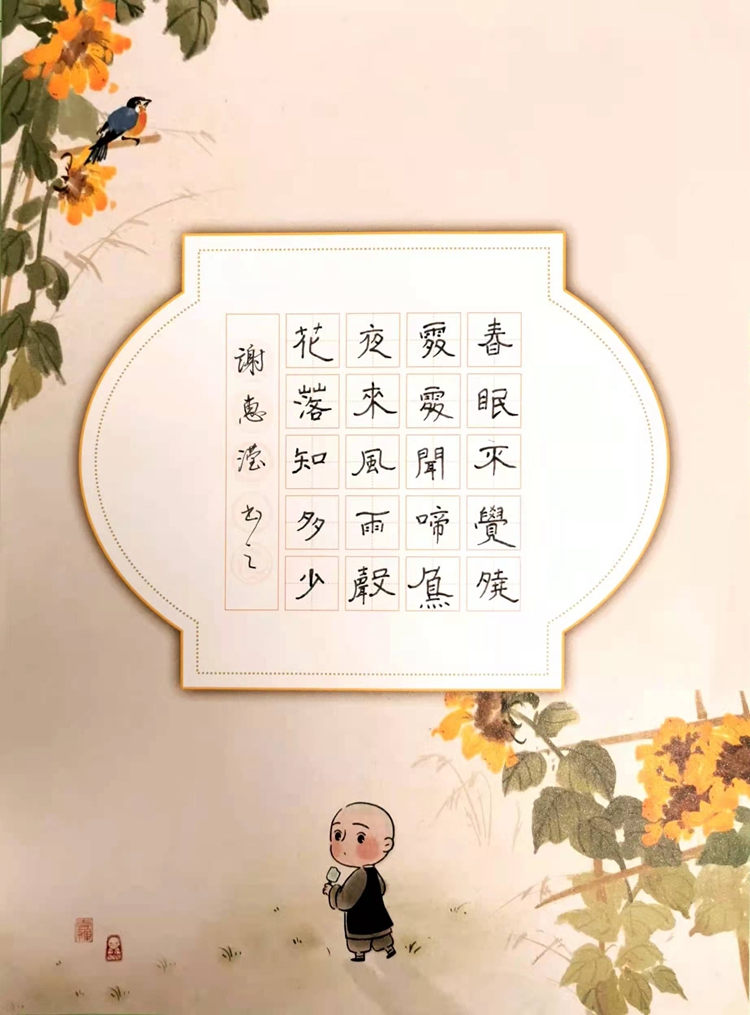 春眠不覺曉
處處聞啼鳥
夜來風雨聲
花落知多少
謝惠瀅书之